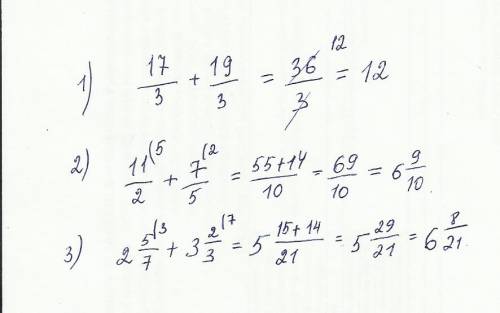 1) 17/3 + 19/3 = 36/3 12 = 12
2) 11(5/2 + 7(2/5 = 55+14/10 = 69/10 = 6 9/10
3) 2 5(3/7 + 3 2(7/3 = 5 15+14/21 = 5 29/21 = 6 8/21